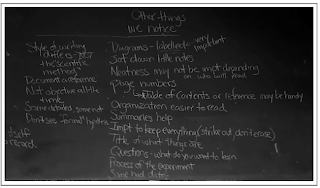 Other things
we notice
Style of writing
differs - not
the "scientific
method"
Document a reference
Not objective all the
time
Some detailed some not
Don't see "formal" hypothesis
itself
record
Diagrams - labelled - very
important
Jot down little notes
Neatness may not be imp't depending
on who will read
Page numbers
Table of Contents or reference may be handy
Organization easier to read
Summaries help
Imp't to keep everything (strike out, don't erase)
Title of what things are
Questions - what do you want to learn
Process of the experiment
Some had dates